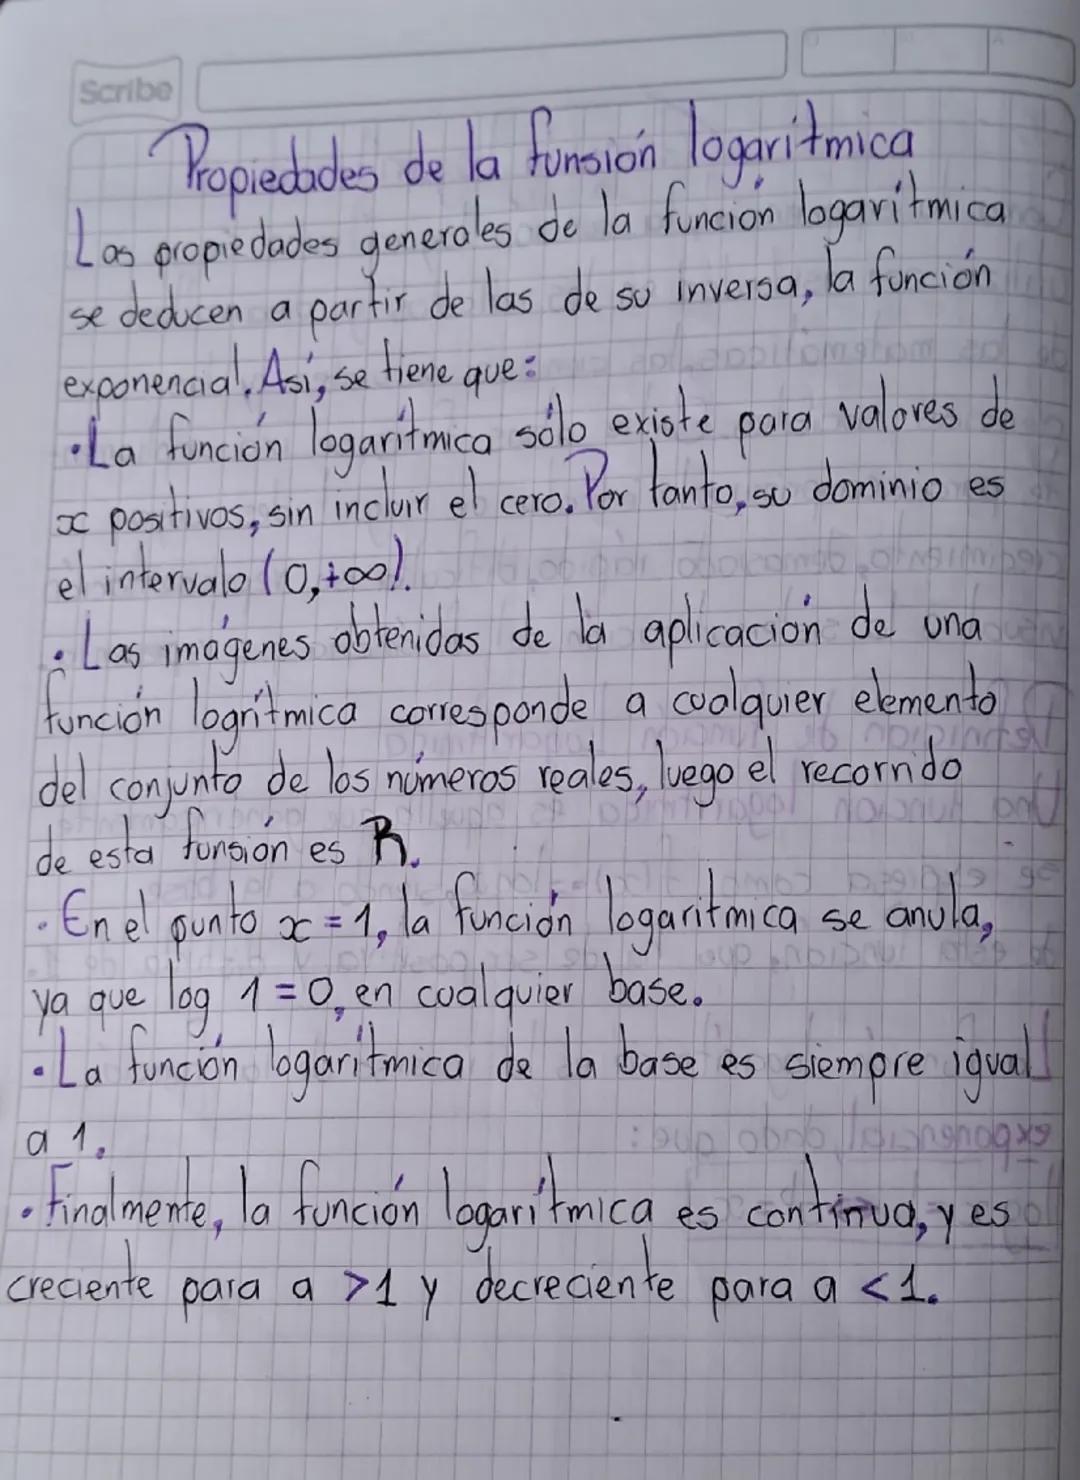 Scribe
Propiedades de la funsión logarítmica
Las propiedades generales de la función logarítmica
se deducen a partir de las de su inversa, la función
exponencial. Así, se tiene que:
• La función logarítmica sólo existe para valores de
x positivos, sin incluir el cero. Por tanto, su dominio es
el intervalo (0,+∞).
• Las imágenes obtenidas de la aplicación de una
función logrítmica corresponde a cualquier elemento
del conjunto de los números reales, luego el recorrido
de esta funsión es R.
• En el punto x = 1, la función logarítmica se anula,
ya que log 1 = 0, en cualquier base.
• La función logarítmica de la base es siempre igual
a 1.
• Finalmente, la función logarítmica es continua, y es
creciente para a >1 y decreciente para a <1.